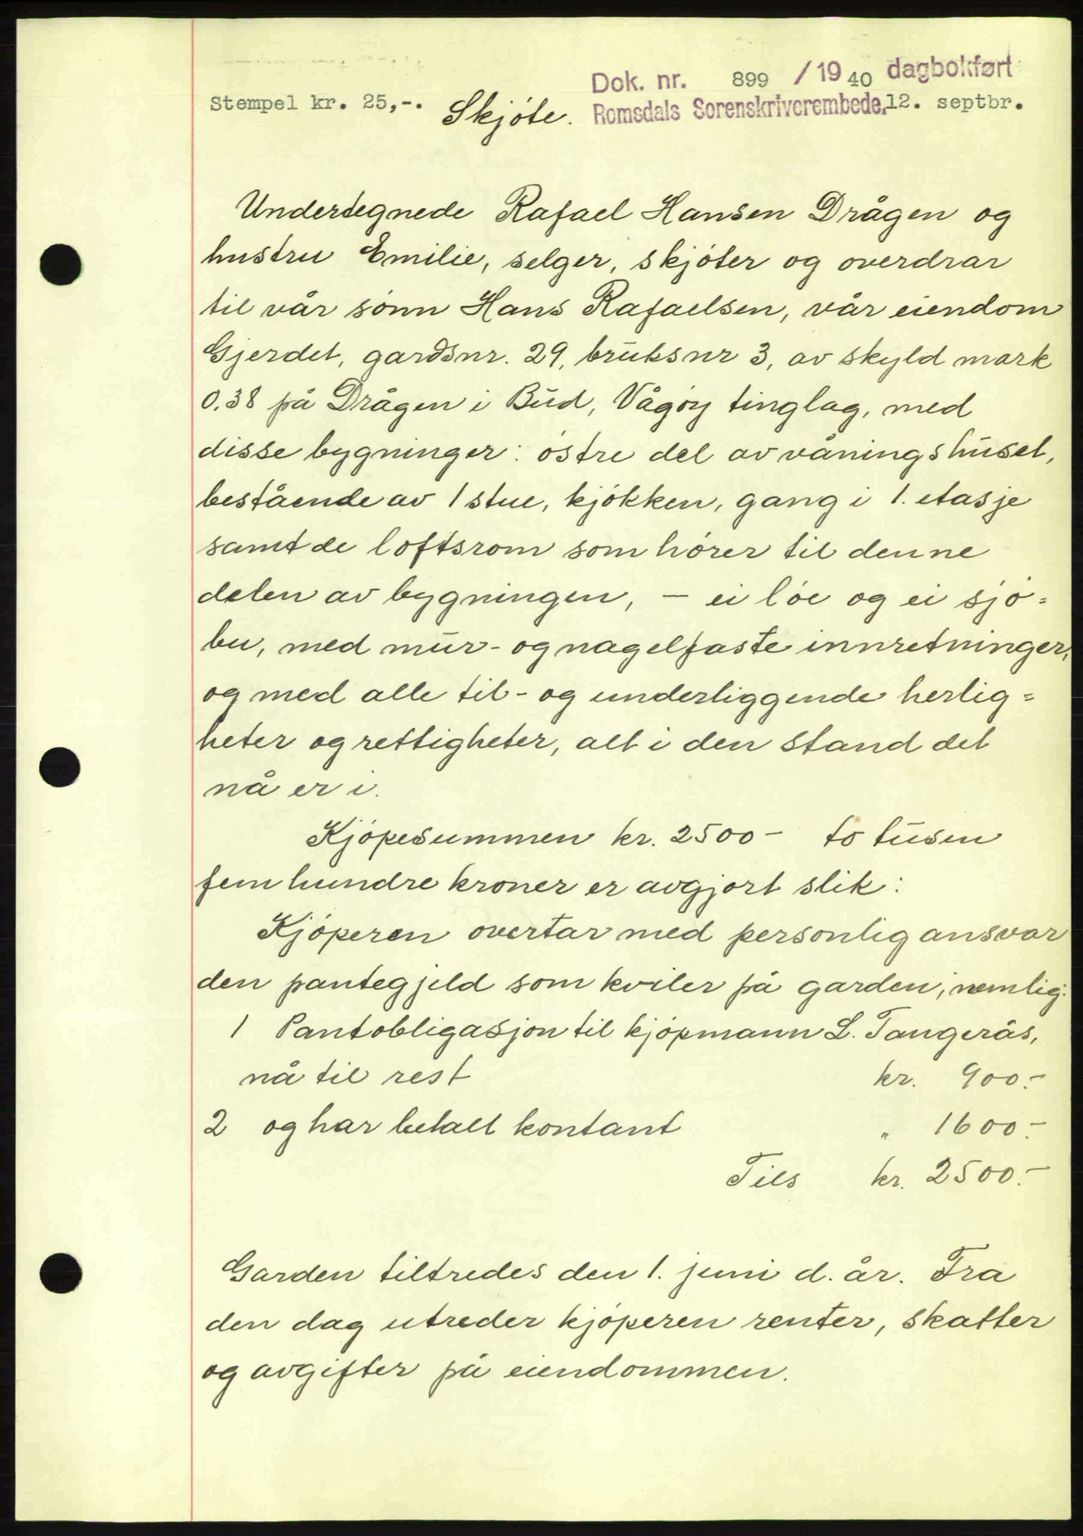 Dok. nr. 899 / 1940 dagbokført
Stempel kr. 25,-. Skjóte. Romsdals Sorenskriverembede, 12. septbr.
Undertegnede Rafael Hansen Drågen og
hustru Emilie, selger, skjóter og overdrar
til vår sønn Hans Rafaelsen, vår eiendom
Gjerdet, gardsnr. 29, bruksnr 3, av skyld mark
0,38 på Drågen i Bud, Vågøy tinglag, med
disse bygninger: óstre del av våningshuset,
bestående av 1 stue, kjókken, gang i 1. etasje
samt de loftsrom som hører til denne
delen av bygningen, - ei lóe og ei sjó=
bu, med mur- og nagelfaste innretninger,
og med alle til- og underliggende herlig=
heter og rettigheter, alt i den stand det
nå er i.
Kjópesummen kr. 2500- to tusen
fem hundre kroner er avgjort slik:
Kjóperen overtar med personlig ansvar
den pantegjeld som kviler på garden, nemlig:
1 Pantobligasjon til kjópmann L. Tangerås,
nå til rest kr. 900.-
2 og har betalt kontant " 1600.-
Tils kr. 2500.-
Garden tiltredes den 1. juni d. år. Fra
den dag utreder kjóperen renter, skatter
og avgifter på eiendommen.